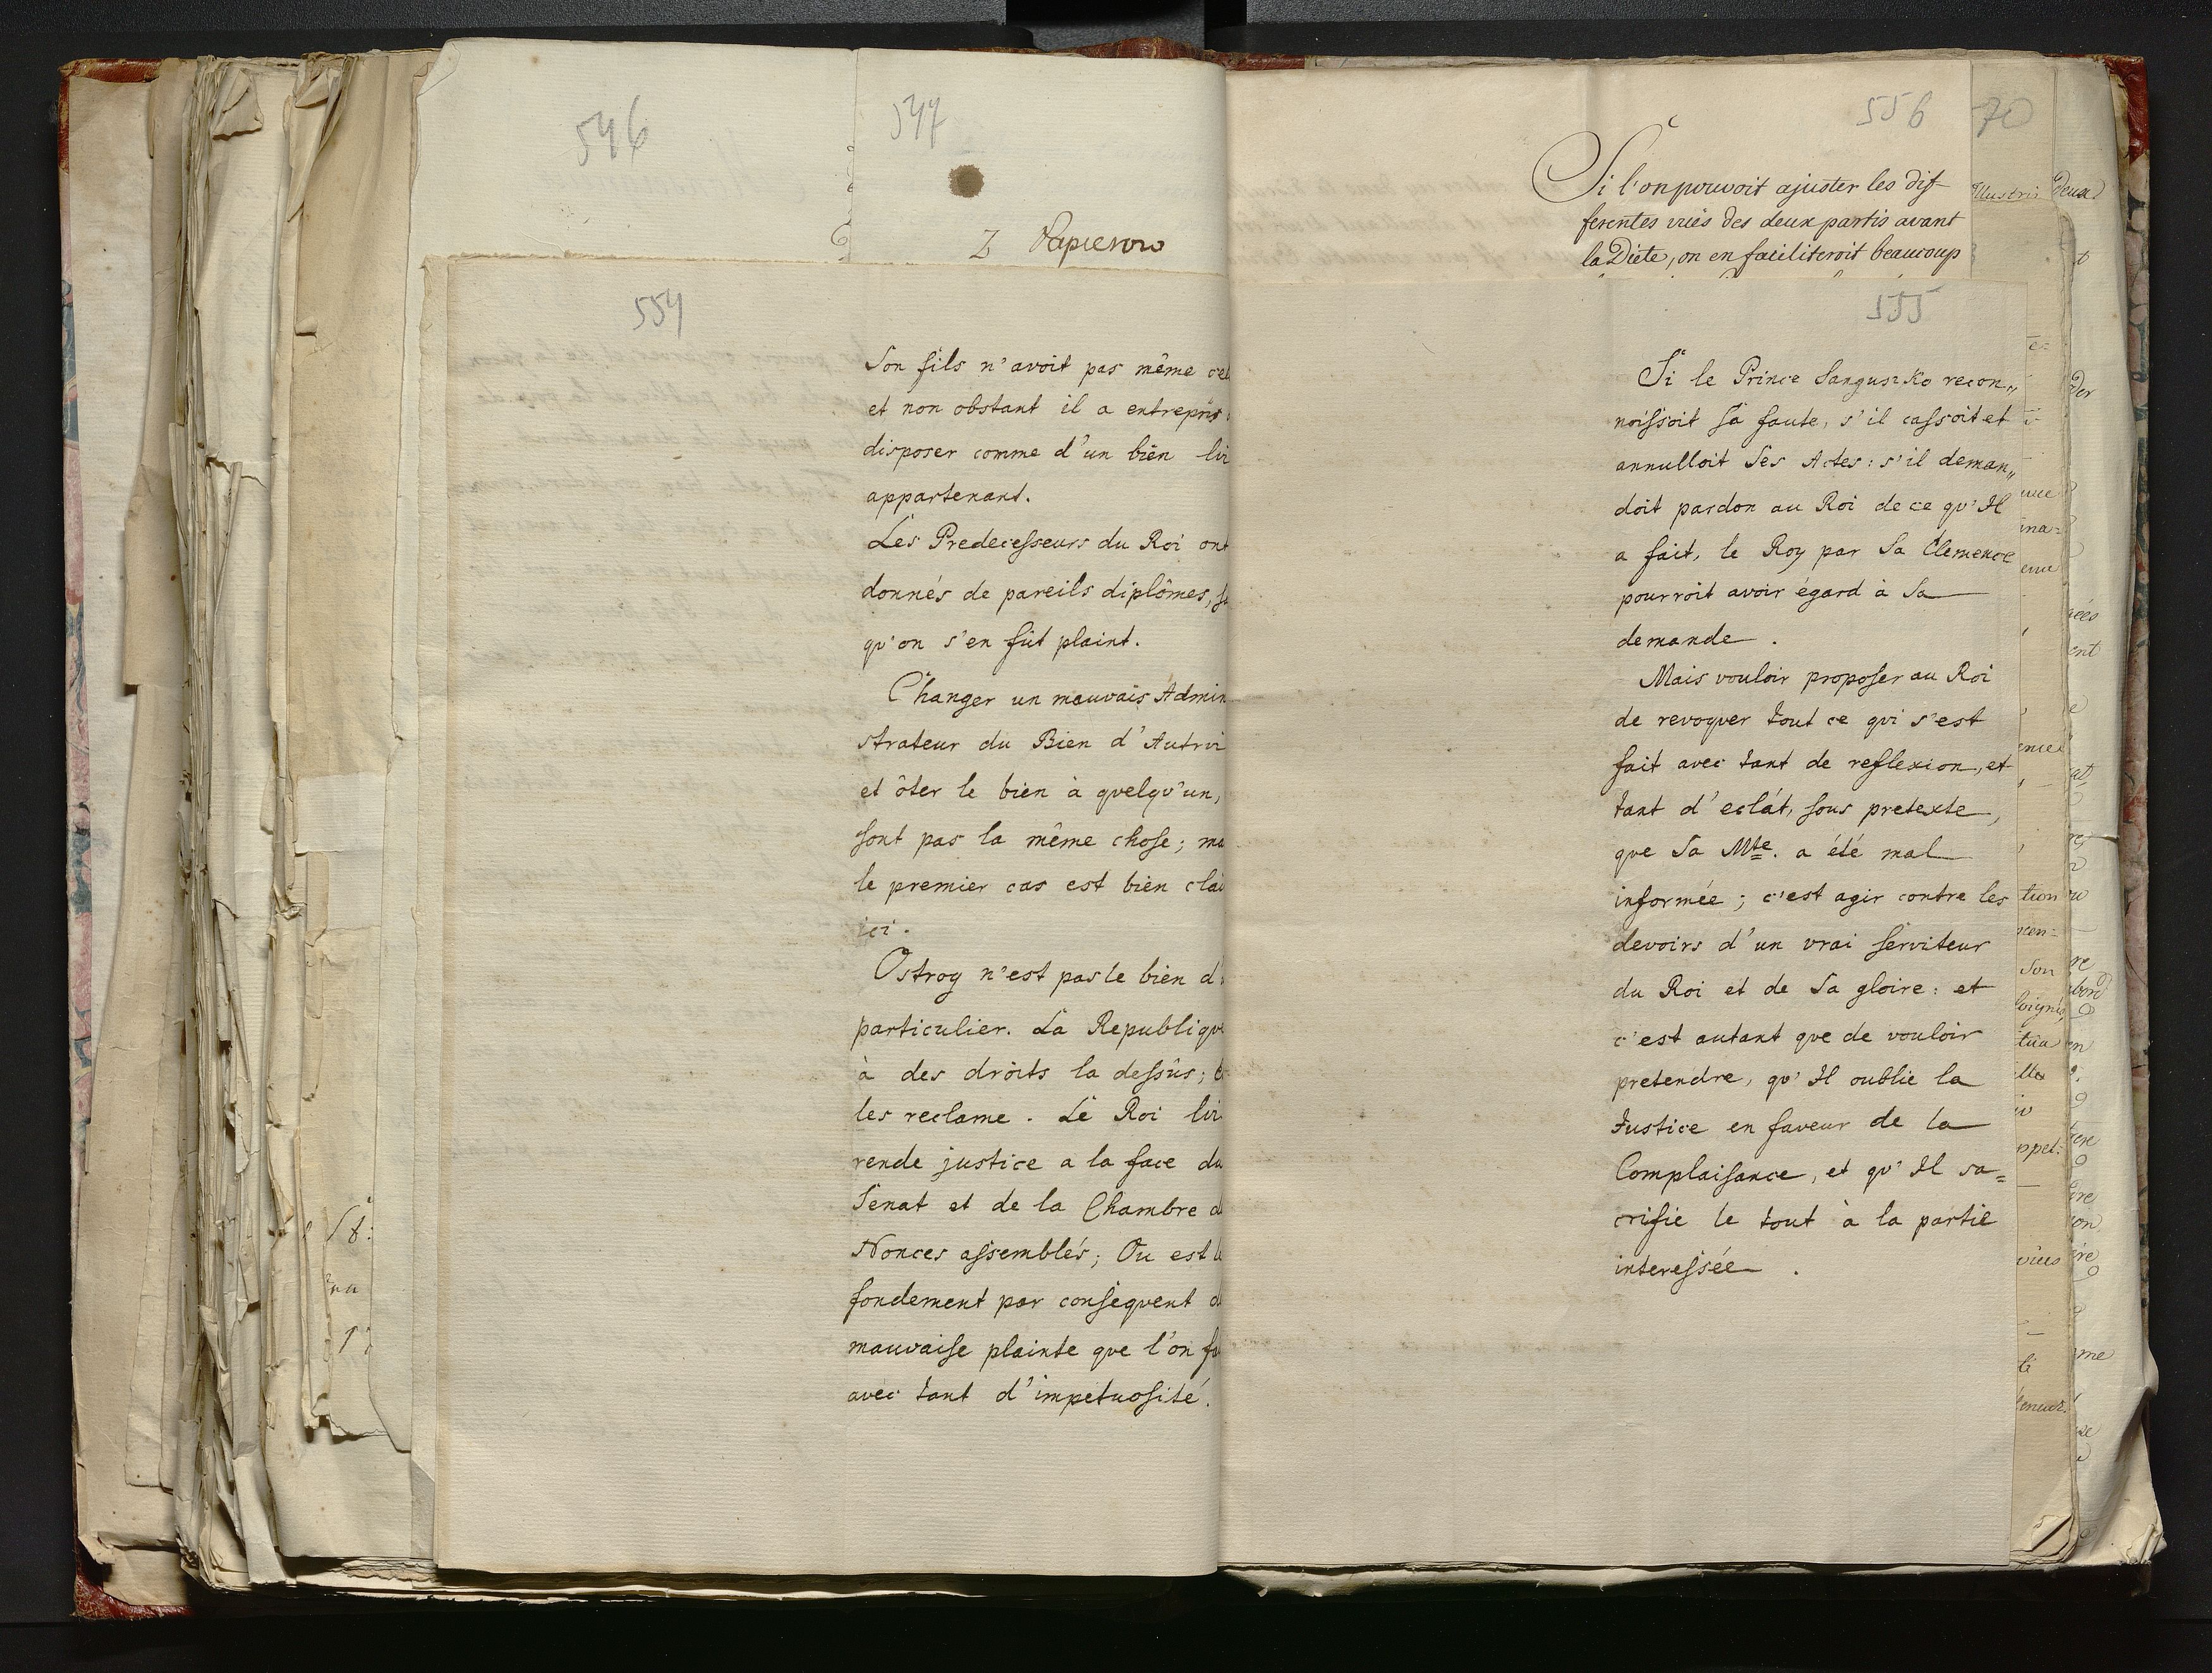 546
547
Z Papierow
554
Son fils n'avoit pas même
et non obstant il a entrepris
disposer comme d'un bien
appartenant.
Les Predecesseurs du Roi ont
donnés de pareils diplômes,
qu'on s'en fût plaint.
Changer un mauvais Admin
strateur du Bien d'Autrui
et ôter le bien à quelqu'un,
sont pas la même chose;
le premier cas est bien clai
ici.
Ostrog n'est pas le bien d'
particulier. La Republique
à des droits la dessûs;
les reclame. Le Roi lui
rende justice a la face du
Senat et de la Chambre d
Nonces assemblés; Ou est l
fondement par consequent d
mauvaise plainte que l'on fa
avec tant d'impetuosité.
556
70
Si l'on pouvoit ajuster les dif-
ferentes vuës des deux partis avant
la Diete, on en faciliteroit beaucoup
555
Si le Prince Sanguszko recon„
noissoit sa faute, s'il cassoit et
annulloit Ses Actes: s'il deman„
doit pardon au Roi de ce qu'Il
a fait, le Roy par Sa Clemence
pourroit avoir égard à Sa
demande.
Mais vouloir proposer au Roi
de revoquer tout ce qui s'est
fait avec tant de reflexion, et
tant d'eclát, sous pretexte,
que Sa Mte. a été mal
informée; c'est agir contre les
devoirs d'un vrai serviteur
du Roi et de Sa gloire: et
c'est autant que de vouloir
pretendre, qu'Il oublie la
Justice en faveur de la
Complaisance, et qu'Il sa=
crifie le tout à la partie
interessée.